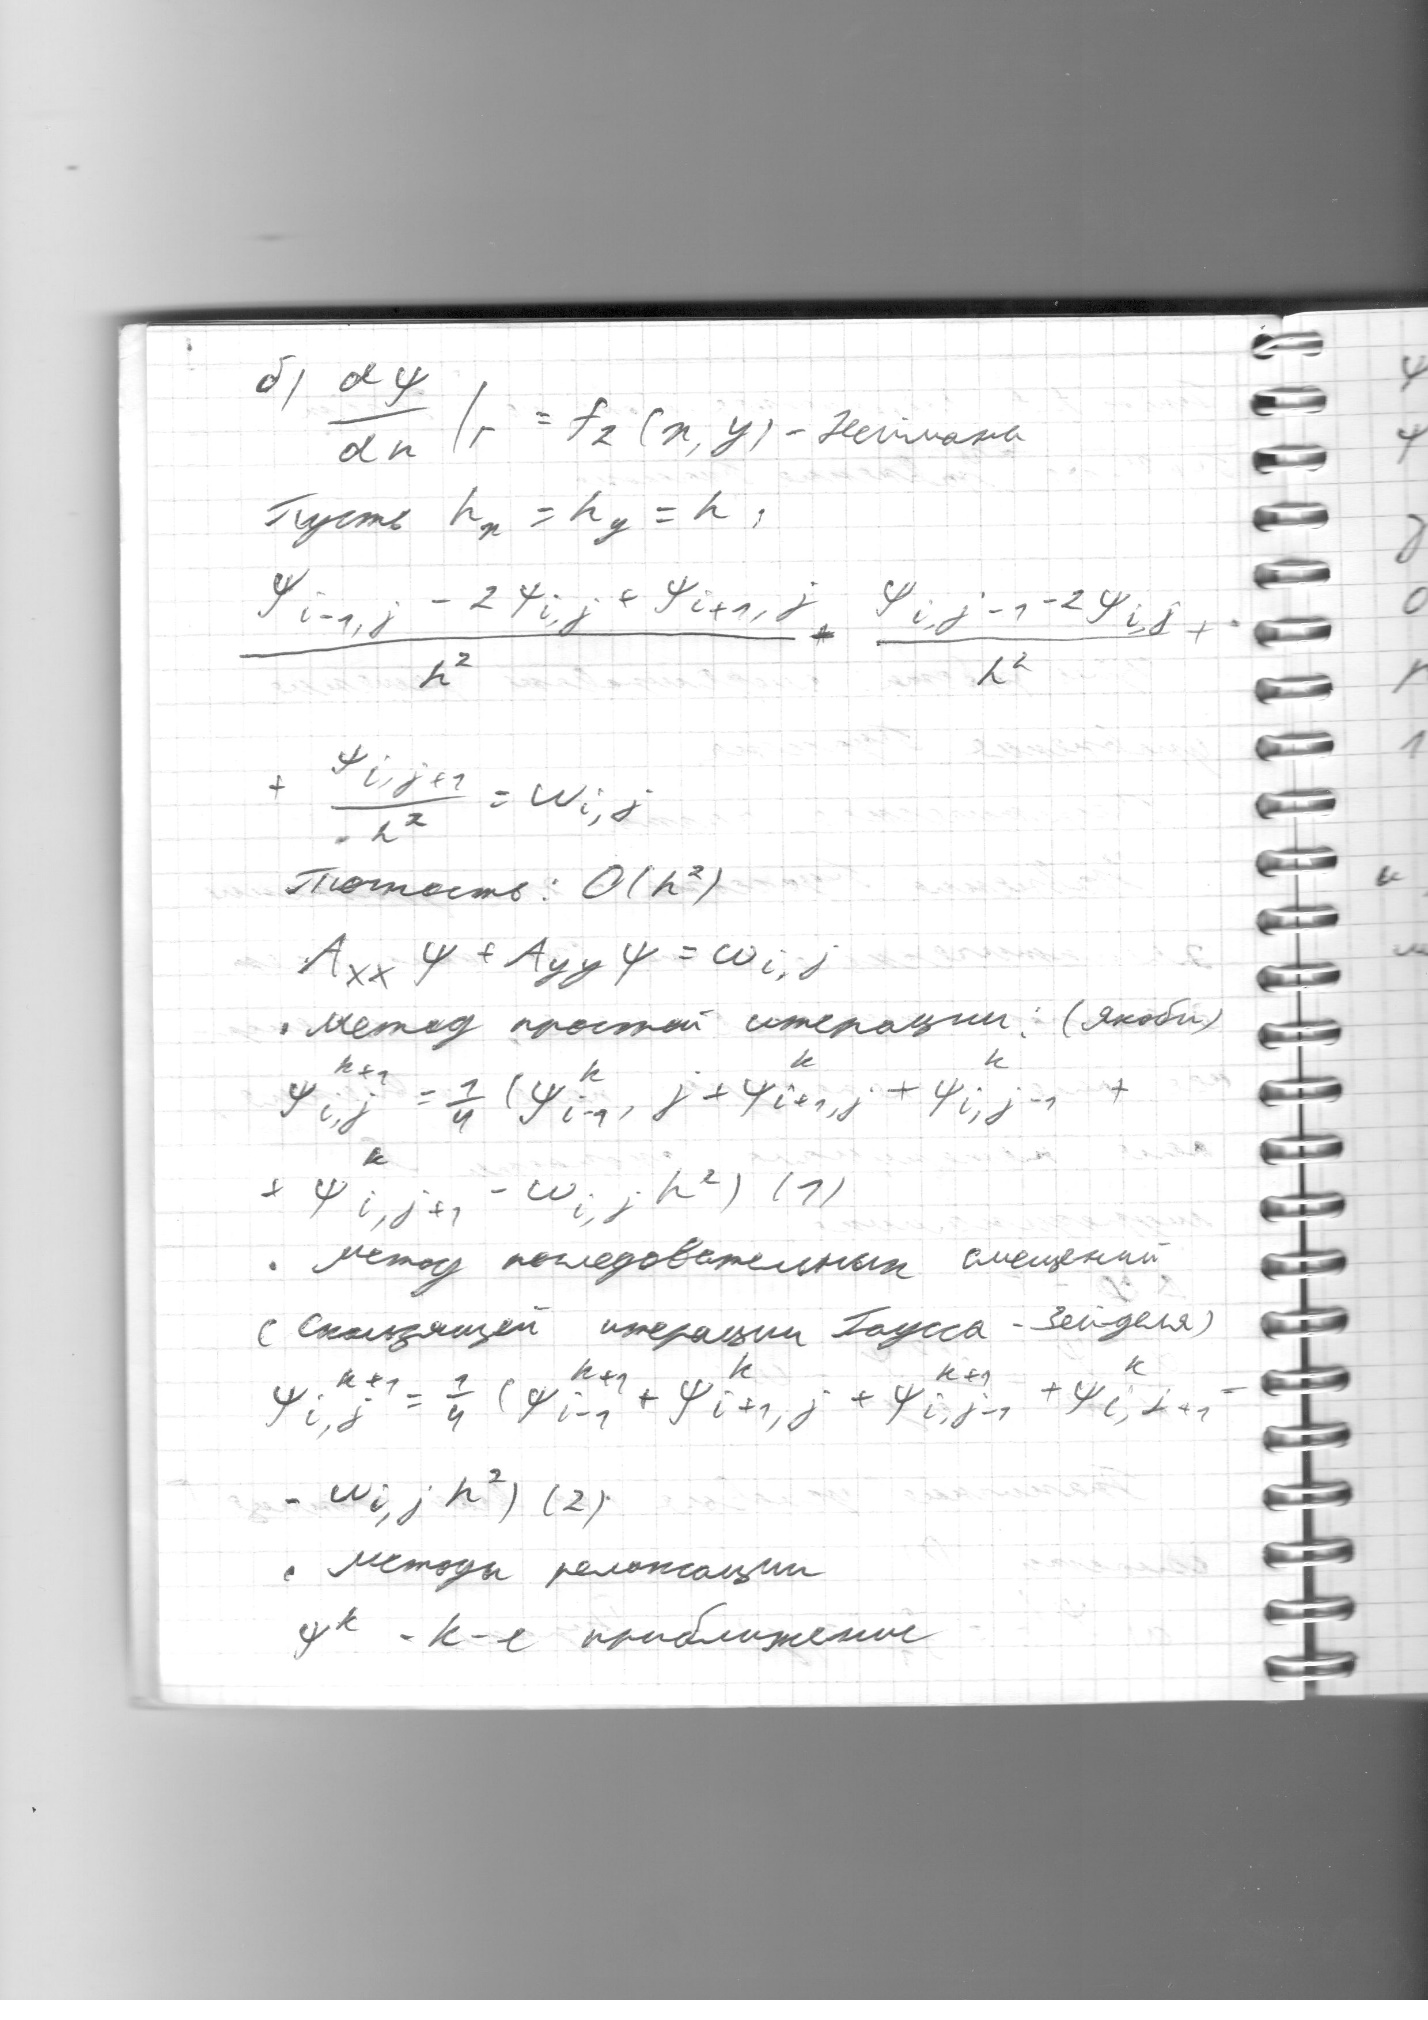 б) dψ/dn |_Γ = f₂(x, y) - Неймана
Пусть hₓ = h_y = h,
(ψ_{i-1,j} - 2ψ_{i,j} + ψ_{i+1,j})/h² + (ψ_{i,j-1} - 2ψ_{i,j} +)/h²
+ ψ_{i,j+1}/h² = ω_{i,j}
Точность: O(h²)
Λ_{xx} ψ + Λ_{yy} ψ = ω_{i,j}
• Метод простой итерации: (Якоби)
ψ_{i,j}^{k+1} = 1/4 (ψ_{i-1,j}^k + ψ_{i+1,j}^k + ψ_{i,j-1}^k +
+ ψ_{i,j+1}^k - ω_{i,j} h²) (1)
• Метод последовательных смещений
(Скользящей итерации Гаусса - Зейделя)
ψ_{i,j}^{k+1} = 1/4 (ψ_{i-1}^{k+1} + ψ_{i+1,j}^k + ψ_{i,j-1}^{k+1} + ψ_{i,j+1}^k -
- ω_{i,j} h²) (2)
• Методы релаксации
ψ^k - k-е приближение